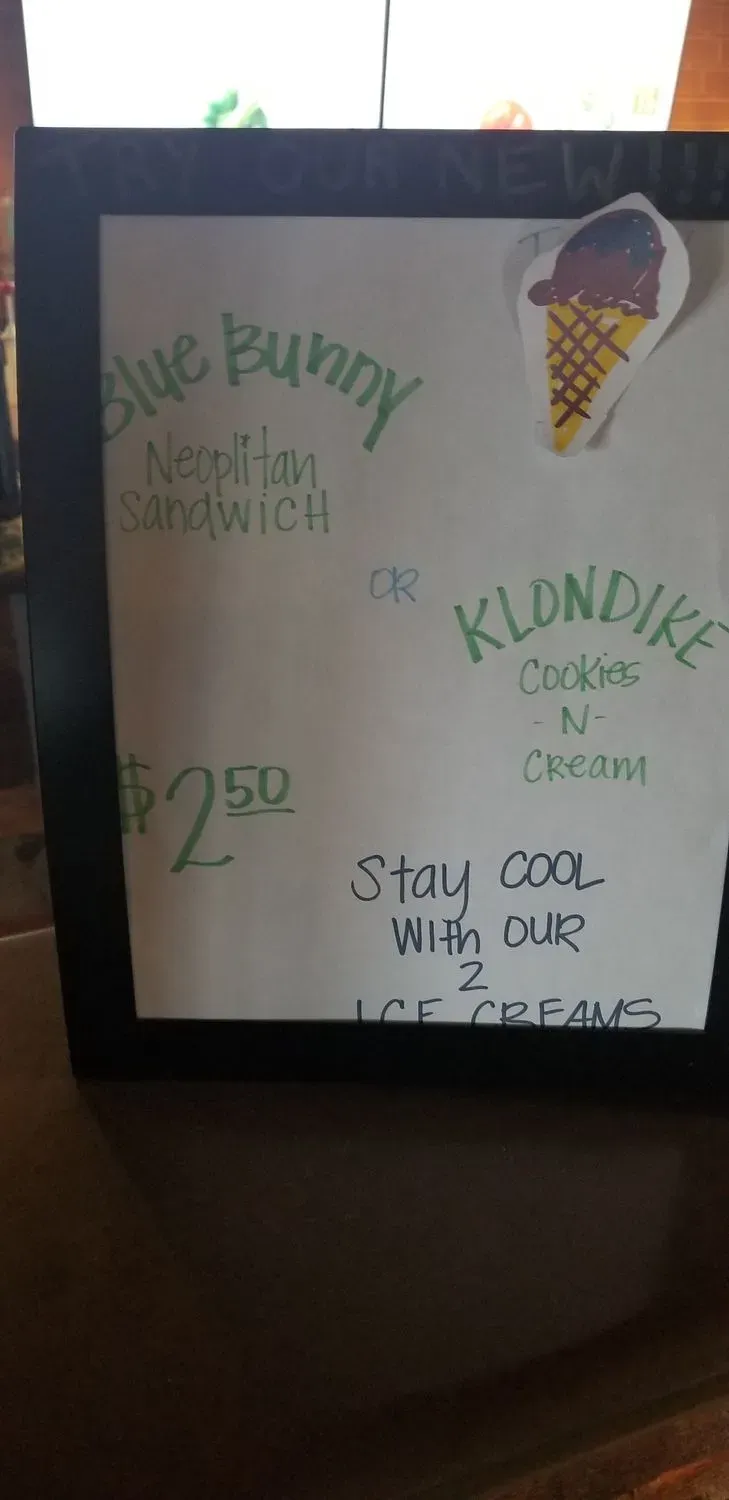 TRY OUR NEW!!!
Blue Bunny
Neoplitan
SandwicH
OR
KLONDIKE
Cookies
- N -
Cream
$2.50
Stay COOL
With OUR
2
ICE CREAMS